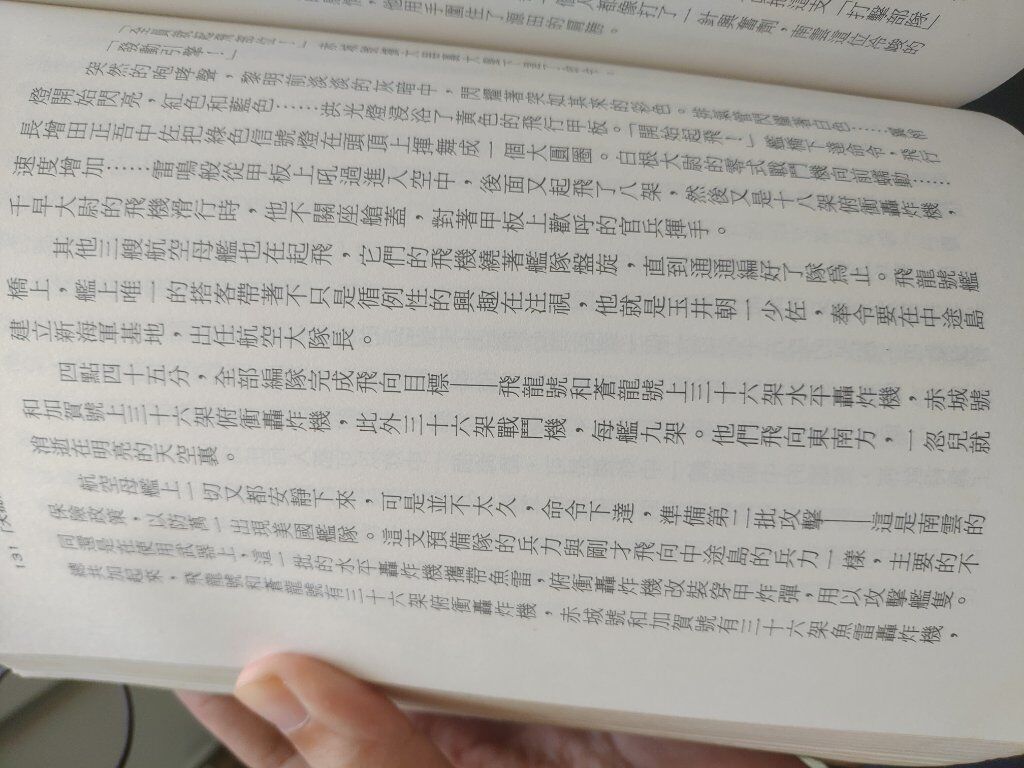 這支「打擊部隊」
個人都像打了一針興奮劑，南雲這位冷峻的
他用手圍住了源田的肩膀。
「發動引擎！」
突然的咆哮聲，黎明前淡淡的灰暗中，閃耀著突如其來的彩色。排氣管閃耀著白色……翼梢
燈開始閃亮，紅色和藍色……洪光燈浸浴了黃色的飛行甲板。「開始起飛！」艦橋下達命令，飛行
長增田正吾中佐把綠色信號燈在頭頂上揮舞成一個大圓圈。白根大尉的零式戰鬥機向前蠕動……
速度增加……雷鳴般從甲板上吼過進入空中，後面又起飛了八架，然後又是十八架俯衝轟炸機，
千早大尉的飛機滑行時，他不關座艙蓋，對著甲板上歡呼的官兵揮手。
其他三艘航空母艦也在起飛，它們的飛機繞著艦隊盤旋，直到通通編好了隊為止。飛龍號艦
橋上，艦上唯一的搭客帶著不只是循例性的興趣在注視，他就是玉井朝一少佐，奉令要在中途島
建立新海軍基地，出任航空大隊長。
四點四十五分，全部編隊完成飛向目標——飛龍號和蒼龍號上三十六架水平轟炸機，赤城號
和加賀號上三十六架俯衝轟炸機，此外三十六架戰鬥機，每艦九架。他們飛向東南方，一忽兒就
消逝在明亮的天空裏。
航空母艦上一切又都安靜下來，可是並不太久，命令下達，準備第二批攻擊——這是南雲的
保險政策，以防萬一出現美國艦隊。這支預備隊的兵力與剛才飛向中途島的兵力一樣，主要的不
同還是在使用武器上，這一批的水平轟炸機攜帶魚雷，俯衝轟炸機改裝穿甲炸彈，用以攻擊艦隻。
總共加起來，飛龍號和蒼龍號有三十六架俯衝轟炸機，赤城號和加賀號有三十六架魚雷轟炸機，
131